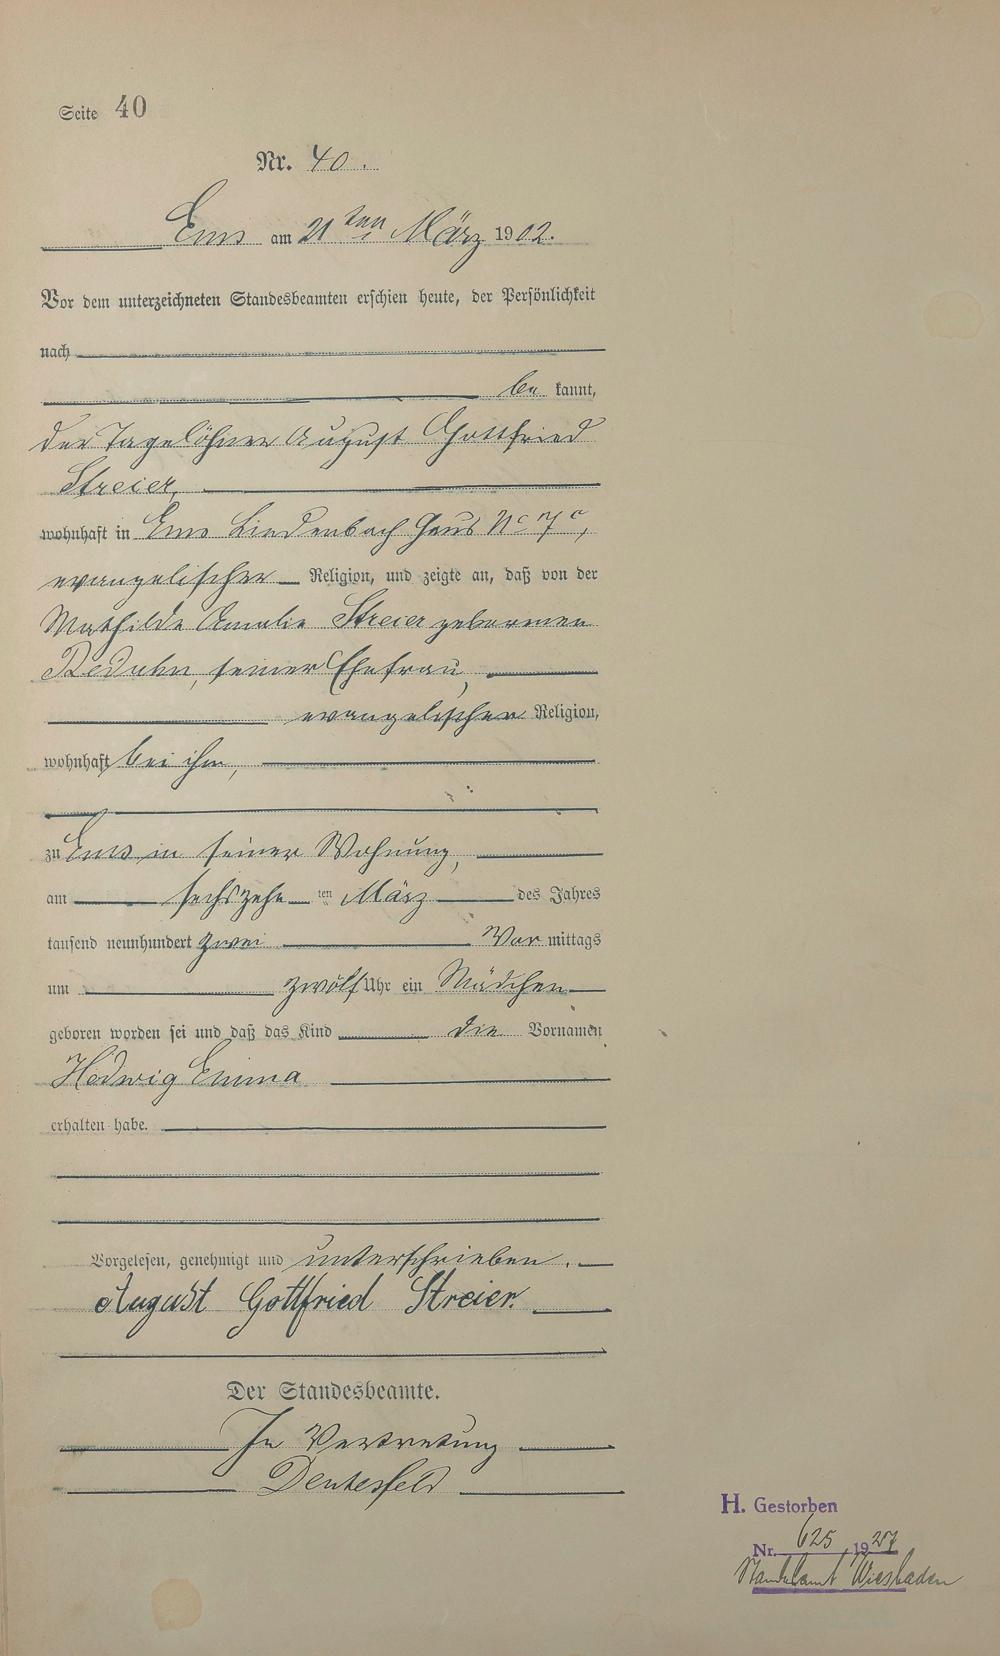 Seite 40
Nr. 40.
Ems am 21ten März 1902.
Vor dem unterzeichneten Standesbeamten erschien heute, der Persönlichkeit
nach
be kannt,
der Tagelöhner August Gottfried
Streier,
wohnhaft in Ems Lindenbach Haus No 7c,
evangelischer Religion, und zeigte an, daß von der
Mathilde Amalie Streier geborenen
seiner Ehefrau,
evangelischer Religion,
wohnhaft bei ihm,
zu Ems in seiner Wohnung,
am sechszehn ten März des Jahres
tausend neunhundert zwei Vor mittags
um zwölf Uhr ein Mädchen
geboren worden sei und daß das Kind die Vornamen
Hedwig Emma
erhalten habe.
Vorgelesen, genehmigt und unterschrieben.
August Gottfried Streier.
Der Standesbeamte.
In Vertretung
H. Gestorben
Nr. 625 1927
Standesamt Wiesbaden